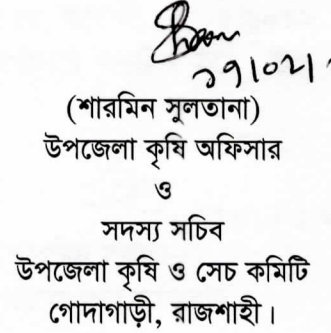 (শারমিন সুলতানা)
উপজেলা কৃষি অফিসার
ও
সদস্য সচিব
উপজেলা কৃষি ও সেচ কমিটি
গোদাগাড়ী, রাজশাহী।